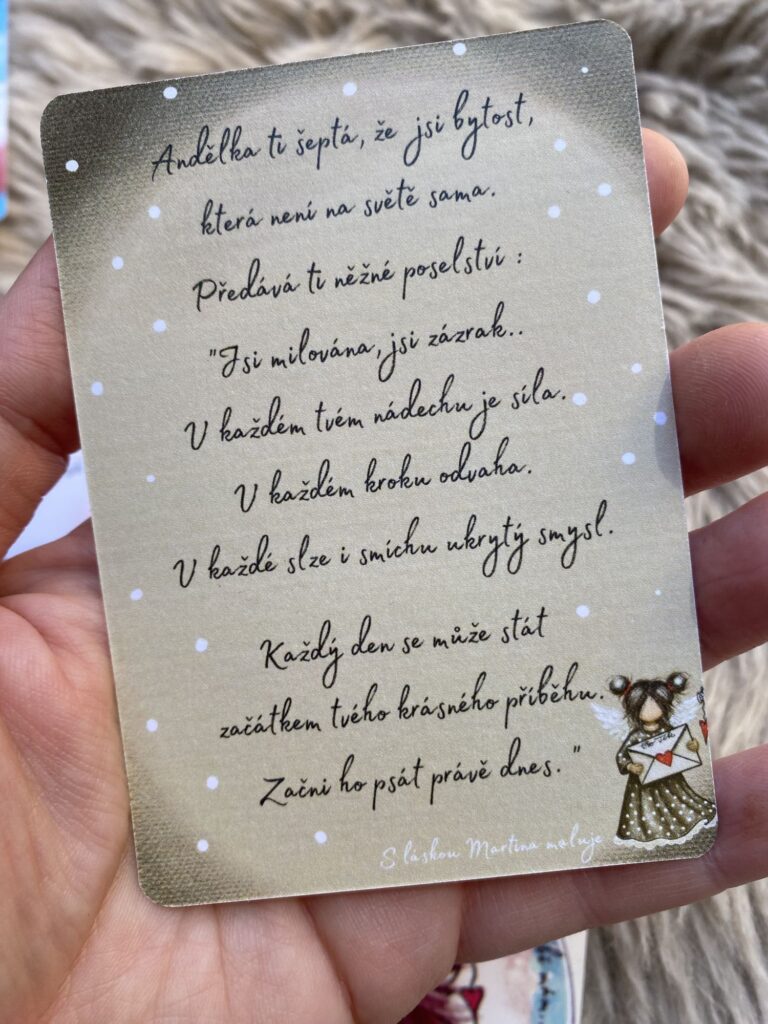 Andělka ti šeptá, že jsi bytost,
která není na světě sama.
Předává ti něžné poselství :
"Jsi milována, jsi zázrak..
V každém tvém nádechu je síla.
V každém kroku odvaha.
V každé slze i smíchu ukrytý smysl.
Každý den se může stát
začátkem tvého krásného příběhu.
Začni ho psát právě dnes."
S láskou Martina maluje